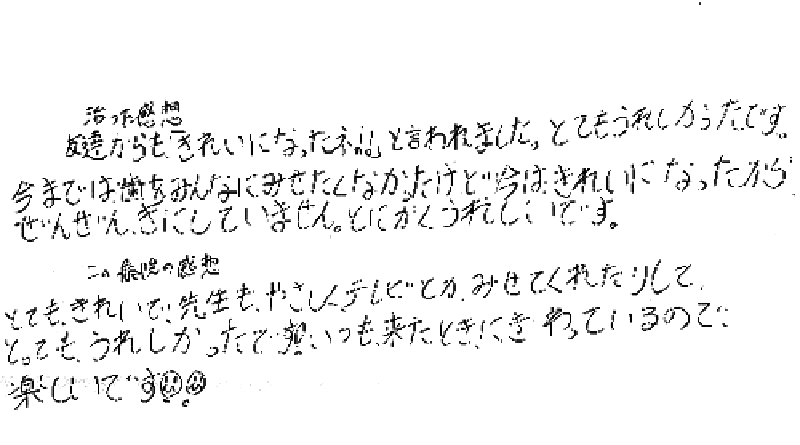 治った感想
友達からも、きれいになったネ!!」と言われました。とてもうれしかったです。
今までは歯をみんなにみせたくなかったけど今はきれいになったから
ぜんぜん、きにしていません。とにかくうれしいです。
この病院の感想
とても、きれいで、先生も、やさしくテレビとか、みせてくれたりして、
とっても、うれしかったです。いつも、来たとき、にぎわっているので、
楽しいです